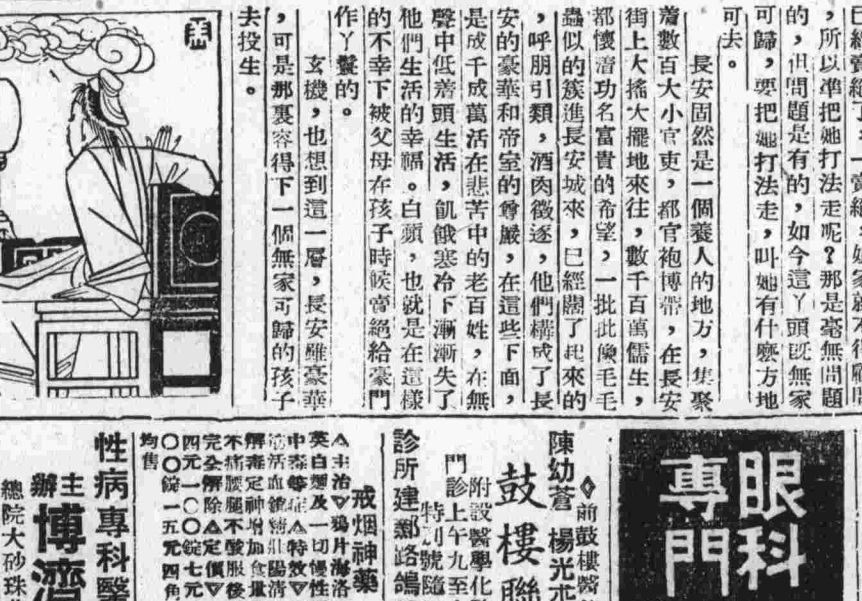 ，所以準把她打法走呢？那是毫無問題
的，但問題是有的，如今這丫頭既無家
可歸，要把她打法走，叫她有什麼方地
可去。
長安固然是一個養人的地方，集聚
着數百大小官吏，都官袍博帶，在長安
街上大搖大擺地來往，數千百萬儒生，
都懷着功名富貴的希望，一批批像毛毛
蟲似的簇進長安城來，已經關了起來的
，呼朋引類，酒肉徵逐，他們構成了長
安的豪華和帝室的尊嚴，在這些下面，
是成千成萬活在悲苦中的老百姓，在無
聲中低着頭生活，飢餓寒冷下漸漸失了
他們生活的幸福。白蘋，也就是在這樣
的不幸下被父母在孩子時候賣絕給豪門
作丫鬟的。
玄機，也想到這一層，長安雖豪華
，可是那裏容得下一個無家可歸的孩子
去投生。
眼科
專門
◇前鼓樓醫
陳幼蒼 楊光
鼓樓聯
附設醫學化
門診上午九至
特別號隨
診所建鄴路鴿
戒烟神藥
△主治▽鴉片海洛
英白麵及一切慢性
中毒等症△特效▽
活血鎮精壯陽清
解毒定神增加食量
不痛腰腿不酸服後
完全解除△定價▽
四元一〇〇錠七元
〇〇錠一五元四角
均售
性病專科醫
主辦
博濟
總院大砂珠